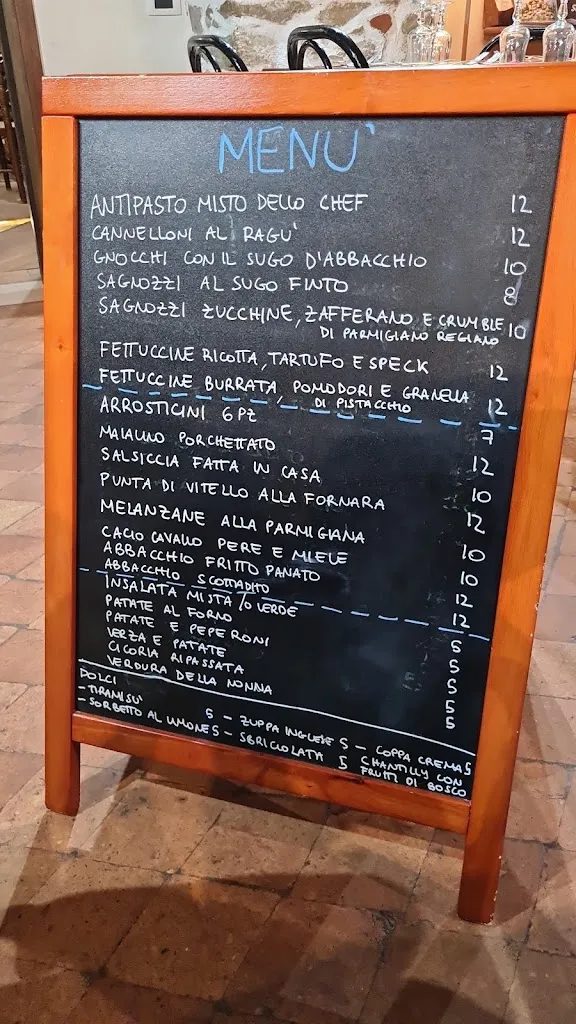 MENU'
ANTIPASTO MISTO DELLO CHEF 12
CANNELLONI AL RAGU' 12
GNOCCHI CON IL SUGO D'ABBACCHIO 10
SAGNOZZI AL SUGO FINTO 8
SAGNOZZI ZUCCHINE, ZAFFERANO E CRUMBLE 10
DI PARMIGIANO REGIANO
FETTUCCINE RICOTTA, TARTUFO E SPECK 12
FETTUCCINE BURRATA, POMODORI E GRANELLA 12
DI PISTACCHIO
ARROSTICINI 6 PZ 7
MAIALINO PORCHETTATO 12
SALSICCIA FATTA IN CASA 10
PUNTA DI VITELLO ALLA FORNARA 12
MELANZANE ALLA PARMIGIANA 10
CACIO CAVALLO PERE E MIELE 10
ABBACCHIO FRITTO PANATO 12
ABBACCHIO SCOTTADITO 12
INSALATA MISTA /O VERDE 5
PATATE AL FORNO 5
PATATE E PEPERONI 5
VERZA E PATATE 5
CICORIA RIPASSATA 5
VERDURA DELLA NONNA
DOLCI
- TIRAMISU' 5 - ZUPPA INGLESE 5 - COPPA CREMA 5
- SORBETTO AL LIMONE 5 - SBRICIOLATA 5 CHANTILLY CON
FRUTTI DI BOSCO